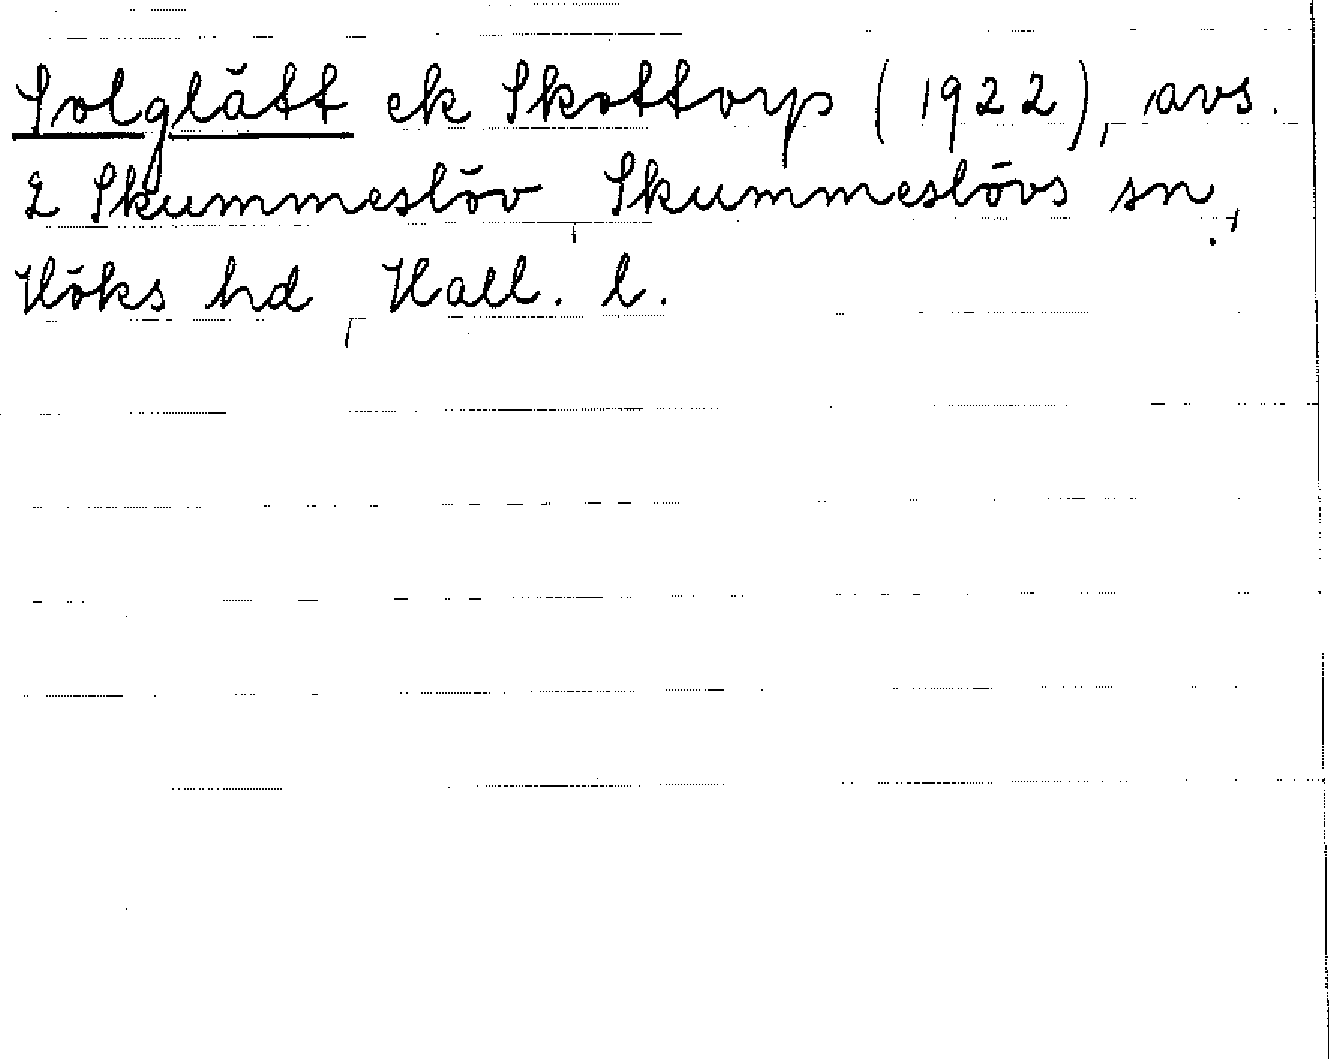 Solglätt ek Skottorp (1922), avs.
2 Skummeslöv, Skummeslövs sn.,
Höks hd, Hall. l.